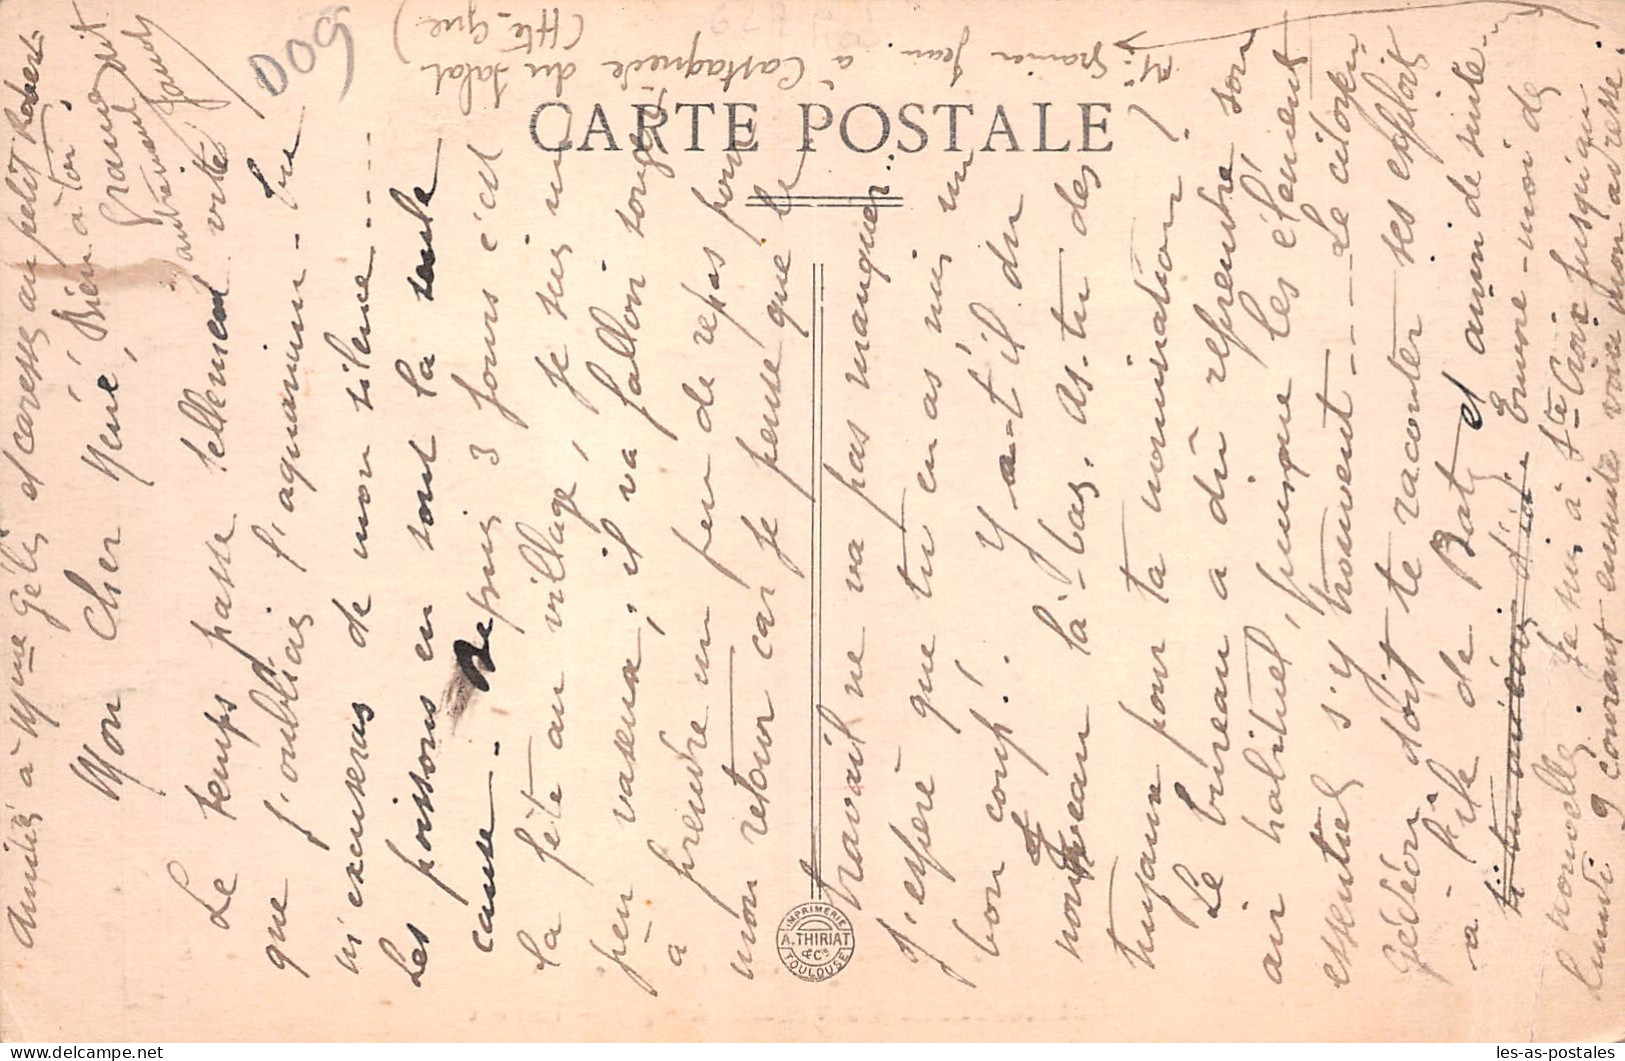 Mon Cher Néné,
Le temps passe tellement vite
que j'oubliais l'aquarium - tu
m'excuseras de mon silence ....
Les poissons en sont la seule
cause. Depuis 3 jours c'est
la fête au village, je suis un
peu vaseux, il va falloir songer
à prendre un peu de repos pour
mon retour car je pense que le
travail ne va pas manquer
j'espère que tu en as mis un
bon coup! Y a-t-il du
nouveau là-bas. As-tu des
tuyaux pour ta nomination?
Le bureau a dû reprendre son
air habituel, puisque les éléments
essentiels s'y trouvent ---- Le citoyen
Gédéon doit te raconter ses exploits
à l'île de Batz et ainsi de suite
Donne-moi de
tes nouvelles. Je suis à Ste Croix jusqu'au
lundi 9 courant ensuite voici mon adresse
Mr Granier Jean. à Castagnède du Salat
(Hte Gne)
Bien à toi,
Amitiés à Mme Gélis et caresses au petit Robert
Granier dit
autrement
CARTE POSTALE
IMPRIMERIE
A. THIRIAT
& Cie
TOULOUSE
D09
les-as-postales